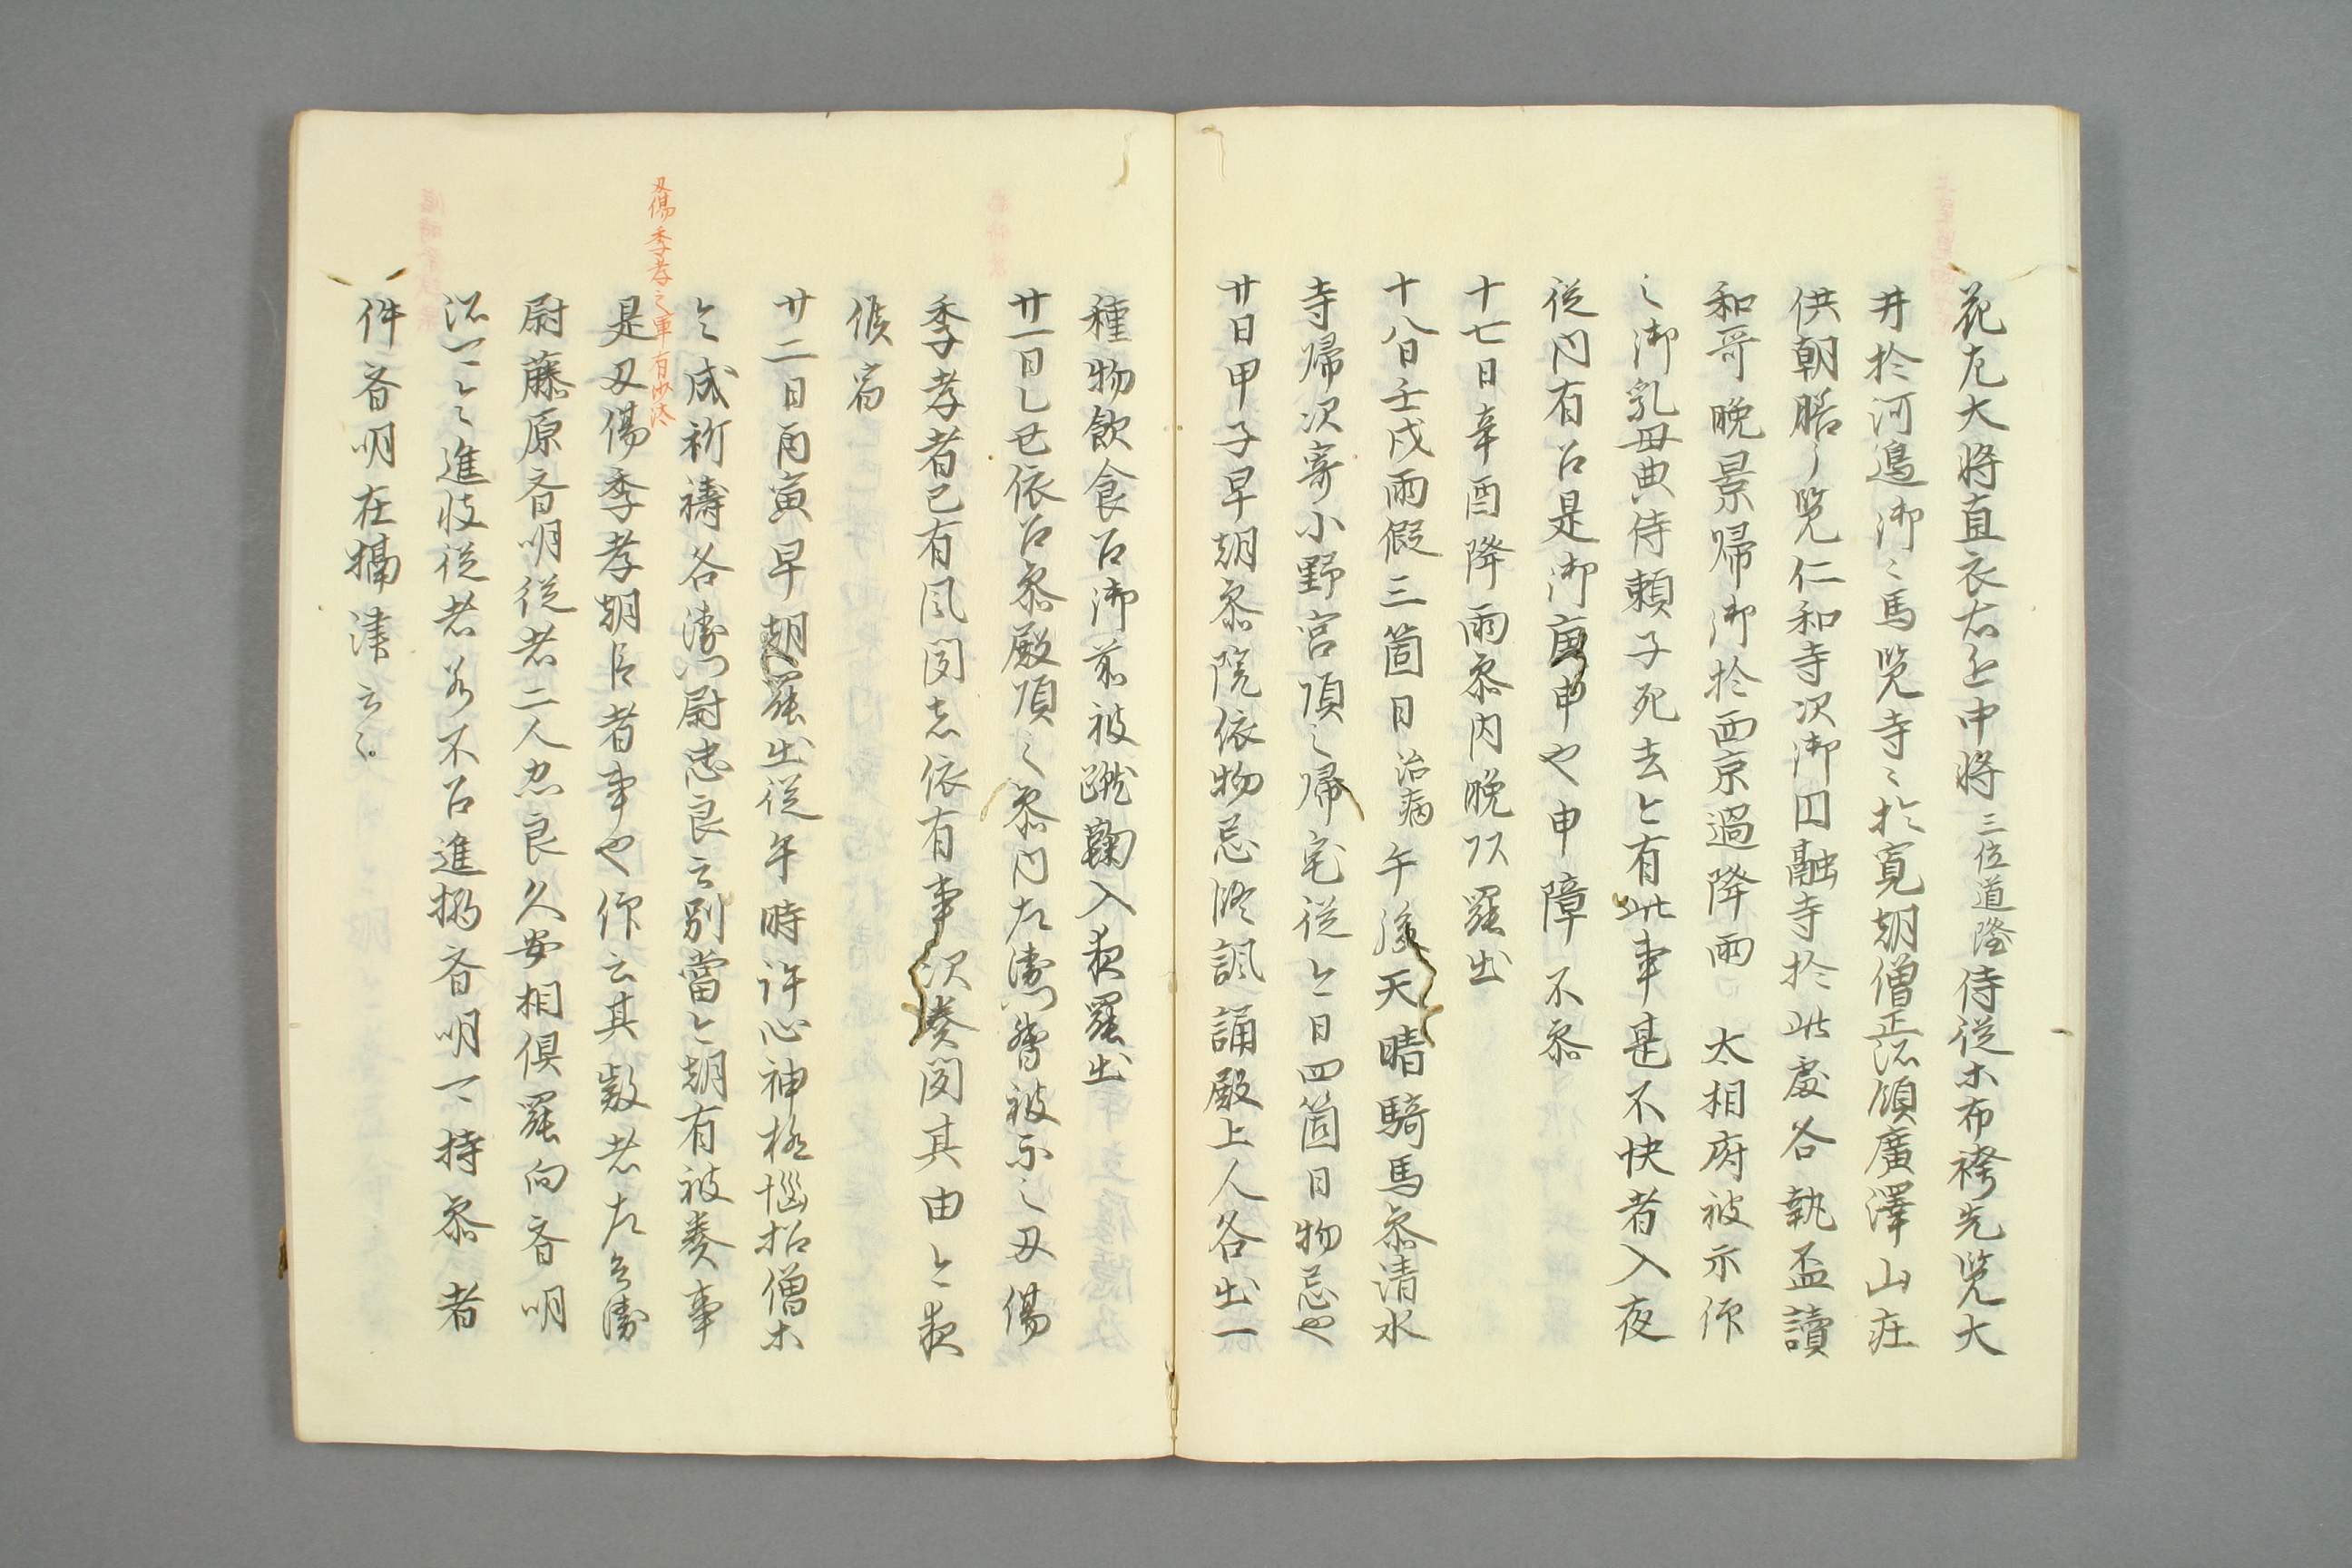 花左大将直衣右近中将三位道隆侍従木布袴先覧大
井於河邉御〻馬覧寺〻於寛朝僧正所領廣澤山庄
供朝膳了覧仁和寺次御円融寺於此處各執盃讀
和哥晩景帰御於西京過降雨 太相府被示作
之御乳母典侍頼子死去云有此事甚不快者入夜
従内有召是御庚申也申障不参
十七日辛酉降雨参内晩頭罷出
十八日壬戌雨假三箇日治病午後天晴騎馬参清水
寺帰次寄小野宮頃之帰宅従今日四箇日物忌也
廿日甲子早朝参院依物忌修諷誦殿上人各出一
種物飲食召御前被蹴鞠入夜罷出
廿一日乙丑依召参殿頃之参内左衛門督被示之刃傷
季孝者已有風聞志依有事次奏聞其由今夜
候宿
廿二日丙寅早朝罷出従午時許心神極惱招僧木
令成祈禱各衛門尉忠良云別當今朝有被奏事
是刃傷季孝朝臣者事也作云其嫌者左兵衛
尉藤原斉明従者二人忠良久安相倶罷向斉明
所可令進彼従者若不召進搦斉明可持参者
件斉明在摂津云〻
刃傷季孝之事有沙汰